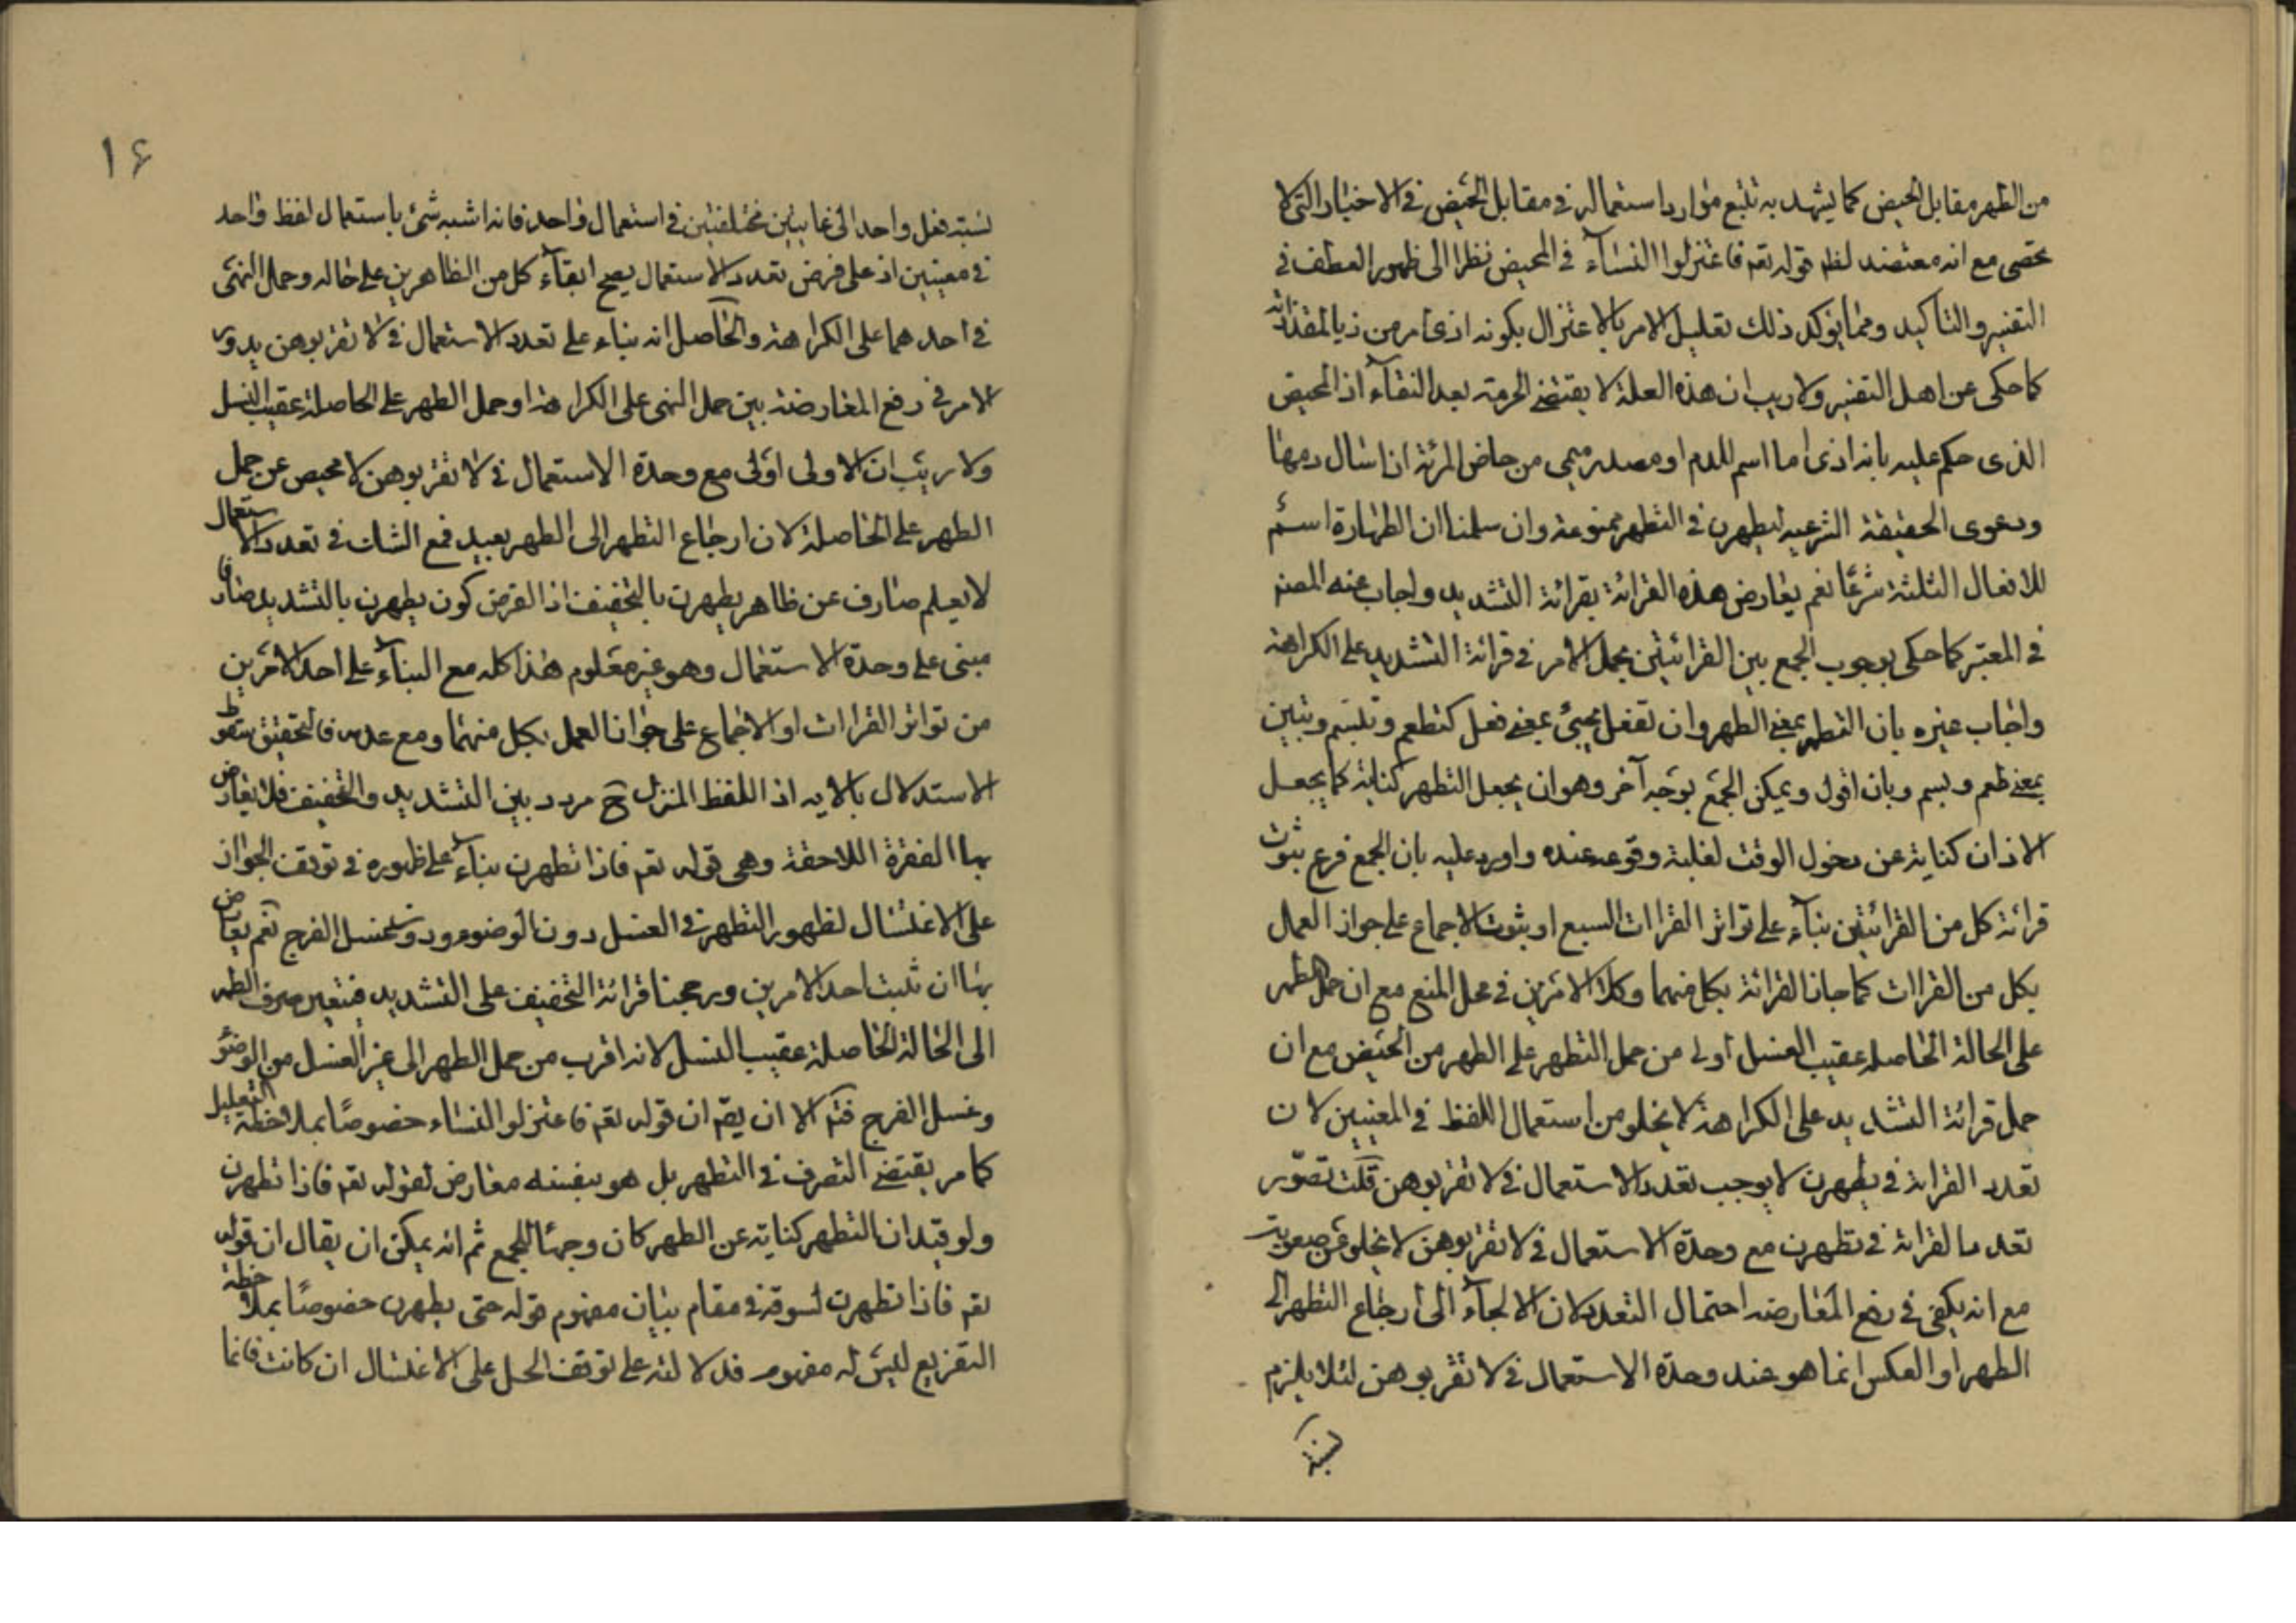 من الطهر مقابل الحيض كما يشهد به تتبع موارد استعماله في مقابل الحيض في الاخبار التي لا
تحصى مع انه معتضد لفظ قوله تعم فاعتزلوا النساء في المحيض نظرا الى ظهور العطف في
التفسير والتاكيد ومما يؤكد ذلك تعليل الامر بالاعتزال بكونه اذى
كما حكى عن اهل التفسير ولا ريب ان هذه العلة لا يقتضى الحرمة بعد النقاء اذ المحيض
الذى حكم عليه بانه اذى اما اسم للدم او مصدر ميمى من حاض المرئة اذا سال دمها
ودعوى الحقيقة الشرعيه ليطهرن في التطهر ممنوعة وان سلمنا ان الطهارة اسم
للافعال الثلثة شرعًا نعم يعارض هذه القرائة بقرائة التشديد واجاب عنه المصنم
في المعتبر كما حكى بوجوب الجمع بين القرائتين بحمل الامر في قرائة التشديد على الكراهة
واجاب غيره بان التطهر بمعنى الطهر وان تفعل يجيئ بمعنى فعل كتطعم وتبسم وتبين
بمعنى طعم وبسم وبان اقول ويمكن الجمع بوجه آخر وهو ان يجعل التطهر كناية كما يجعل
الاذان كناية عن دخول الوقت لغلبة وقوعه عنده واورد عليه بان الجمع فرع ثبوت
قرائة كل من القرائتين بناء على تواتر القراات السبع او بثبوت الاجماع على جواز العمل
بكل من القراات كما جاز القرائة بكل منهما وكلا الامرين في محل المنع مع ان حمل الطهر
على الحالة الحاصله عقيب الغسل اولى من حمل التطهر على الطهر من الحيض مع ان
حمل قرائة التشديد على الكراهة لا يخلو من استعمال اللفظ في المعنيين لان
تعدد القرائة في يطهرن لا يوجب تعدد الاستعمال في لا تقربوهن قلت تصوّر
تعدد القرائة في يطهرن مع وحدة الاستعمال في لا تقربوهن لا يخلو عن صعوبة
مع انه يكفى في رفع المعارضه احتمال التعدد لان الالجاء الى ارجاع التطهر الى
الطهر او العكس انما هو عند وحدة الاستعمال في لا تقربوهن لئلا يلزم
نسبة
١۶
نسبة فعل واحد الى غايتين مختلفتين في استعمال واحد فانه اشبه شئ باستعمال لفظ واحد
في معنيين اذ على فرض تعدد الاستعمال يصح ابقاء كل من الظاهرين على حاله وحمل النهى
في احدهما على الكراهة والحاصل انه بناء على تعدد الاستعمال في لا تقربوهن يدور
الامر في رفع المعارضة بين حمل النهى على الكراهة او حمل الطهر على الحاصلة عقيب الغسل
ولا ريب ان الاولى اولى مع وحدة الاستعمال في لا تقربوهن لا محيص عن حمل
الطهر على الحاصلة لان ارجاع التطهر الى الطهر بعيد فمع الشك في تعدد الاستعمال
لا يعلم صارف عن ظاهر يطهرن بالتخفيف اذ الفرض كون يطهرن بالتشديد صارفا
مبنى على وحدة الاستعمال وهو غير معلوم هذا كله مع البناء على احد الامرين
من تواتر القراات او الاجماع على جواز العمل بكل منهما ومع عدمه فالتحقيق سقوط
الاستدلال بالايه اذ اللفظ المنزل ح مردد بين التشديد والتخفيف فلا يعارض
بها الفقرة اللاحقة وهى قوله تعم فاذا تطهرن بناء على ظهوره في توقف الجواز
على الاغتسال لظهور التطهر في الغسل دون الوضوء ودون غسل الفرج نعم يعارض
بها ان ثبت احد الامرين ورجحنا قرائة التخفيف على التشديد فيتعين صرف الطهر
الى الحالة الحاصلة عقيب الغسل لانه اقرب من حمل الطهر الى غير الغسل من الوضوء
وغسل الفرج فتم الا ان يقم ان قوله تعم فاعتزلوا النساء خصوصًا بملاحظة التعليل
كما مر يقتضى التصرف في التطهر بل هو بنفسه معارض لقوله تعم فاذا تطهرن
ولو قيد ان التطهر كناية عن الطهر كان وجهًا للجمع ثم انه يمكن ان يقال ان قوله
تعم فاذا تطهرن لسوقه في مقام بيان مفهوم قوله حتى يطهرن خصوصًا بملاحظة
التفريع ليس له مفهوم فدلالته على توقف الحل على الاغتسال ان كانت فانما